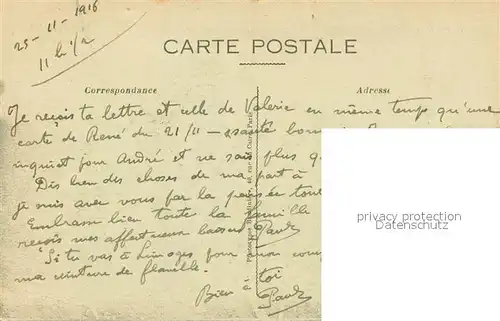 25-11-1916
11 h 1/2
CARTE POSTALE
Correspondance
Adresse
Je reçois ta lettre et celle de Valerie en même temps qu'une
carte de René du 21/11 - santé bon
inquiet pour André et ne sais plus q
Dis bien des choses de ma part à
je suis avec vous par la pensée tou
Embrasse bien toute la famille
reçois mes affectueux baisers Paul
Si tu vas à Limoges pour mon com
ma ceinture de flanelle.
Bien à toi
Paul
privacy protection
Datenschutz